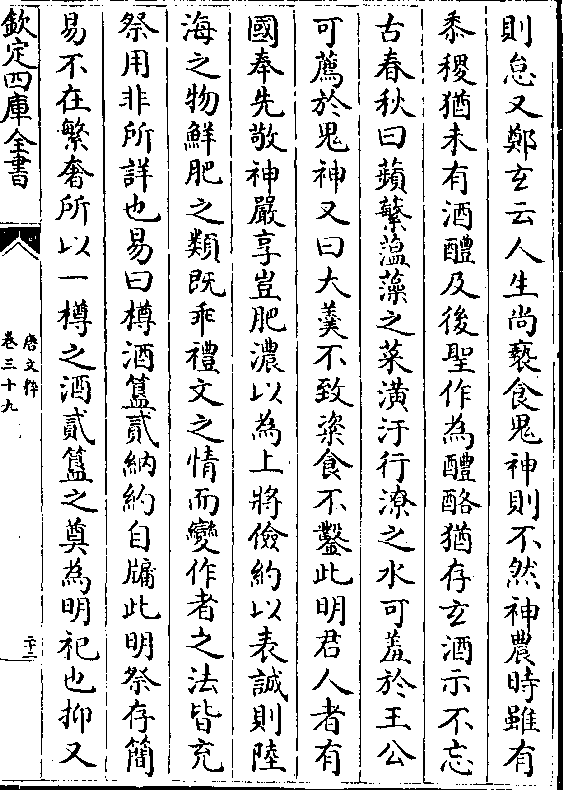 則怠又鄭玄云人生尚䙝食鬼神則不然神農時雖有
黍稷猶未有酒醴及後聖作為醴酪猶存玄酒示不忘
古春秋曰蘋蘩薀藻之菜潢汙行潦之水可羞於王公
可薦於鬼神又曰大羮不致粢食不鑿此明君人者有
國奉先敬神嚴享豈肥濃以為上將儉約以表誠則陸
海之物鮮肥之類既乖禮文之情而變作者之法皆充
祭用非所詳也易曰樽酒簋貳納約自牖此明祭存簡
易不在繁奢所以一樽之酒貳簋之奠為明祀也抑又
欽定四庫全書
唐文粹
卷三十九
二十二